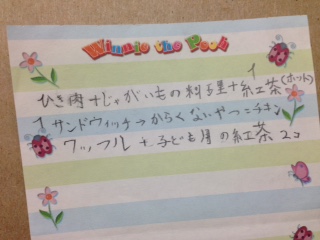 Winnie the Pooh
ひき肉+じゃがいもの料理+紅茶(ホット) 1
1 サンドウィッチ→からくないやつ=チキン
ワッフル + 子ども用の紅茶 2コ